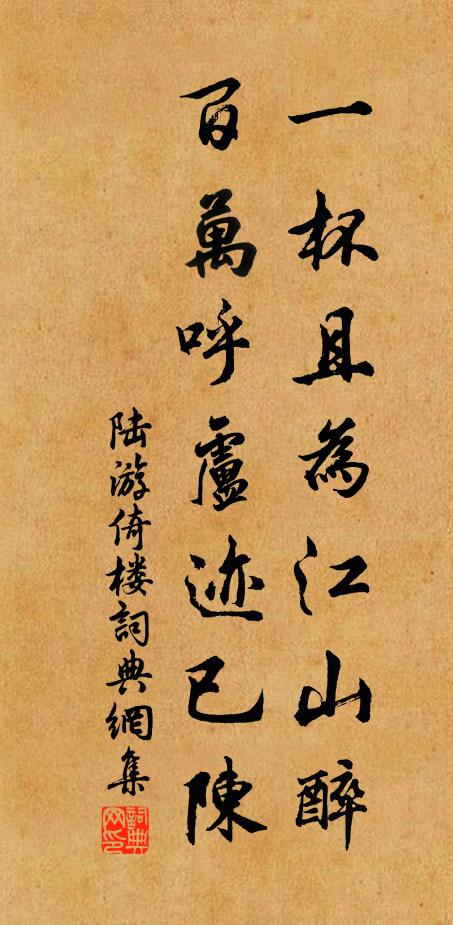 一杯且為江山醉
百萬呼盧迹已陳
陆游倚楼詞典網集
詞典網印